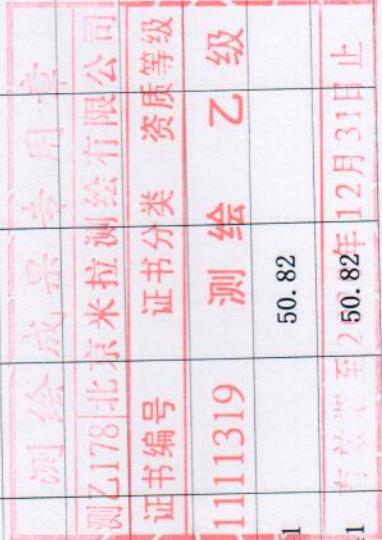 测绘成果专用章
测乙178 北京米拉测绘有限公司
证书编号 证书分类 资质等级
11111319 测绘 乙级
50.82
有效期至2 年12月31日止
50.82